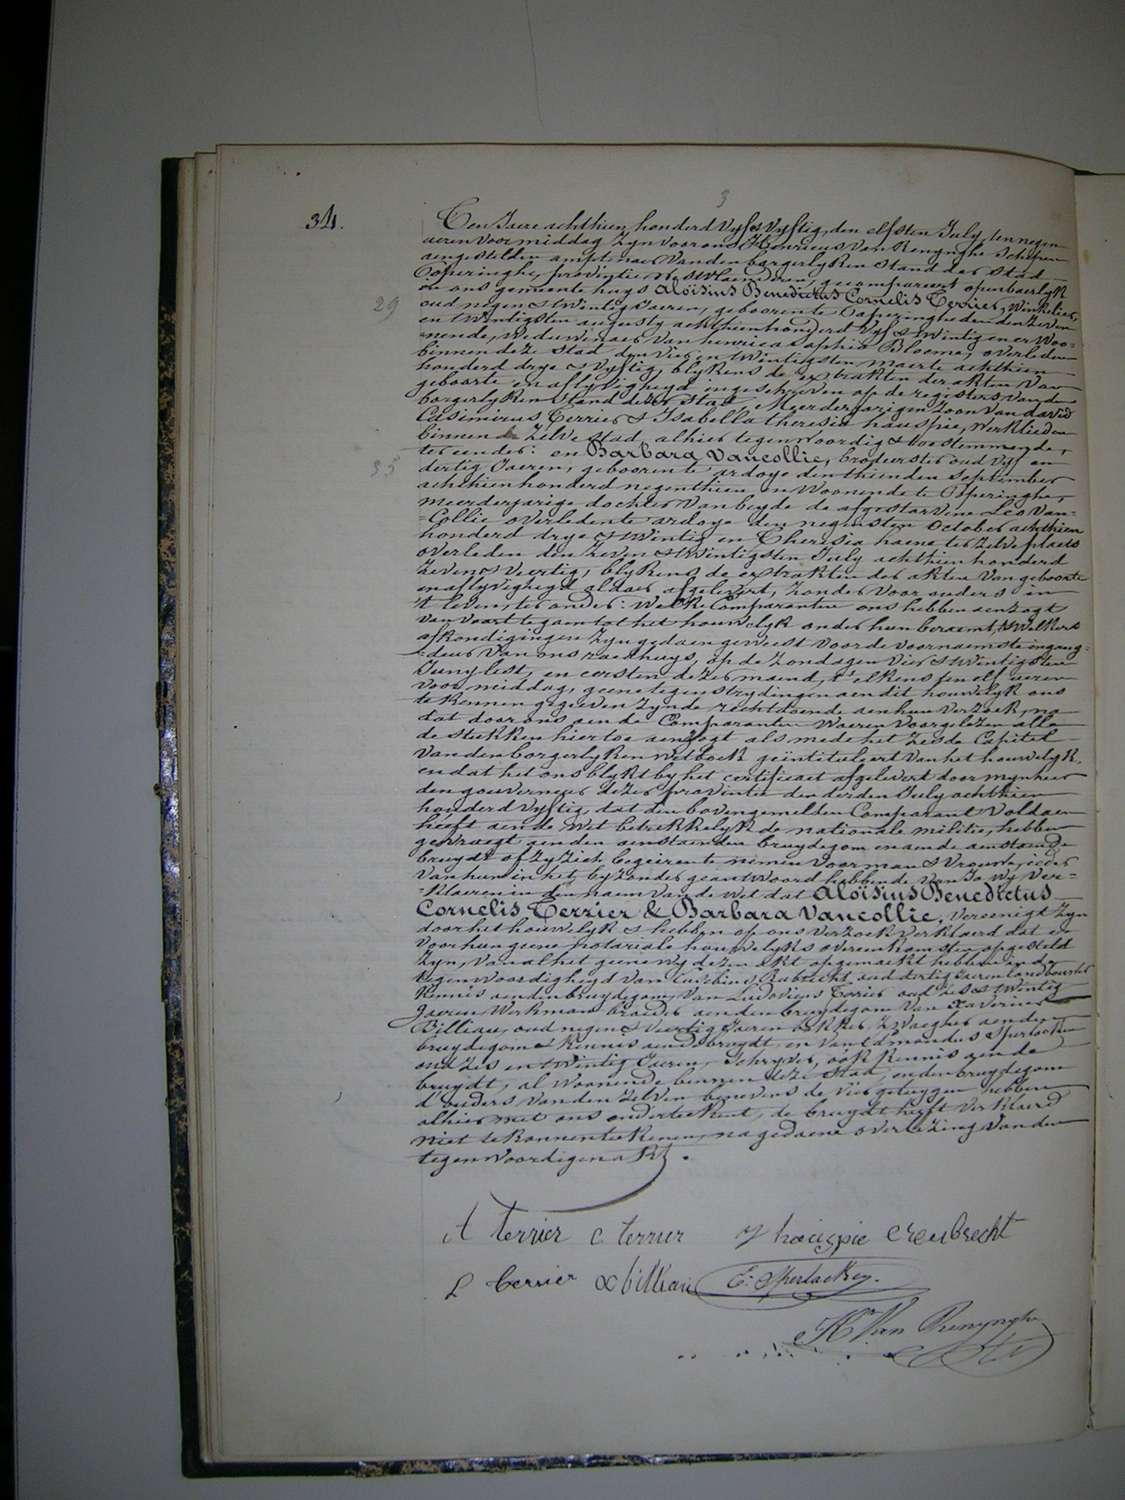 3
34.
Ten Jaere achthien honderd vyf & vyftig, den elfsten July, ten negen
ueren voormiddag zyn voor ons Henricus Van Renynghe Schepen
aengestelden amptenaer van den borgerlyken stand der stad
Poperinghe, provintie Westvlaenderen, gecompareert openbaerlyk
in ons gemeente huys Aloïsius Benedictus Cornelis Terrier, Winkelier,
29
oud negen & twintig Jaeren, geboren te Poperinghe den den zeven
en twintigsten augusty achthien honderd vyf & twintig en er Woo-
nende, Weduwenaer van henrica sophia Bloome, overleden
binnen deze stad den vier en twintigsten maerte achthien
honderd drye & vyftig, blykens de extrakten der akten van
geboorte en aflyvigheyd ingeschreven op de registers van den
borgerlyken stand dezer stad Meerderjarigen zoon van david
Cassimirus Terrier & Isabella theresia hauspie, Werklieden
binnen de zelve stad, alhier tegenwoordig & toestemmende,
ter eender: en Barbara Vancollie, brodeerster oud vyf en
35
dertig Jaeren, geboren te ardoye den thienden September
achthien honderd negenthien en Woonende te Poperinghe,
meerderjarige dochter van beyde de afgestorvene Leo Van-
Collie overleden te ardoye den negensten October achthien
honderd drye & twintig en Theresia haene ter zelve plaets
overleden den zeven & twintigsten July achthien honderd
zeven & veertig, blykens de extrakten der akten van geboorte
en aflyvigheyd aldaer afgelevert, zonder voorouders in
't leven ter ander: Welke Comparanten ons hebben aenzogt
van voort te gaen tot het houwelyk onder hun beraemt, & Welkers
afkondigingen zyn gedaen geweest voor de voornaemste ingang-
deur van ons raedhuys, op de Zondagen vier & twintigsten
Juny lest, en eersten dezer maend, t'elkens ten elf ueren
voor middag, geene tegenstrydingen aen dit houwelyk ons
te kennen gegeven zynde rechtdoende aen hun verzoek, na
dat door ons aen de Comparanten Waeren voorgelezen alle
de stukken hier toe aenzogt als mede het zesde Capitel
van den borgerlyken Wetboek geïntituleert van het houwelyk,
en dat het ons blykt by het certificaet afgelevert door mynheer
den gouverneur dezer provintie den derden July achthien
honderd vyftig, dat den bovengemelden Comparant Voldaen
heeft aen de Wet betrekkelyk de nationale militie, hebben
gevraegt aen den aenstaenden bruydegom en aen de aenstaende
bruydt of zy zich begeiren te nemen voor man & vrouw, ieder
van hun in het byzonder geantwoord hebbende van Ja Wy ver-
klaeren in den naem van de Wet dat Aloïsius Benedictus
Cornelis Terrier & Barbara Vancollie, vereenigt zyn
door het houwelyk & hebben op ons verzoek verklaerd dat er
voor hun geene notariale houwelyks overeenkomsten opgesteld
zyn, van al het geene wy dezen akt opgemaekt hebben in de
tegenwoordigheyd van Rubrecht, oud dertig Jaeren landbouwer
Kennis aen den bruydegom, van Ludovicus Terrier oud zes & twintig
Jaeren Werkman broeder aen den bruydegom van Xaverius
Billiau, oud negen & veertig Jaeren bakker, Zwaeger aen den
bruydegom & Kennis aen de bruydt, en van Edmondus Sperlaeken
oud zes en twintig Jaeren, Schryver, ook kennis aen de
bruydt, al woonende binnen deze stad, en den bruydegom
d'ouders van den zelven benevens de vier getuygen hebben
alhier met ons onderteekent, de bruydt heeft verklaerd
niet te konnen teekenen, na gedaene overlezing van den
tegenwoordigen akt.
A terrier C terrier J hauspie C Rubrecht
L terrier X billiau E. Sperlaeken.
Hri Van Renynghe